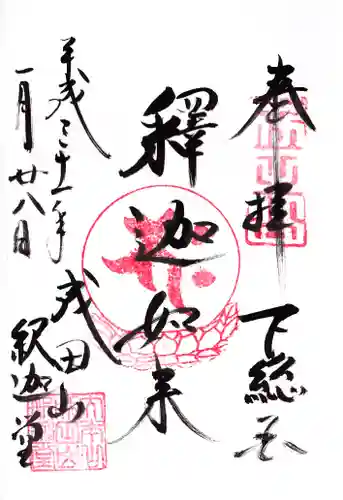 奉拝
下総国
釋迦如来
成田山
釈迦堂
平成三十一年
一月廿八日